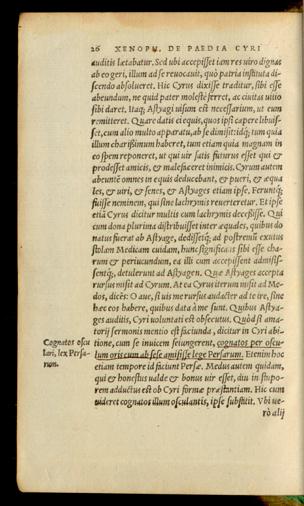 26 XENOPH. DE PAEDIA CYRI
auditis lætabatur. Sed ubi accepisset iam res uiro dignas
ab eo geri, illum ad se reuocauit, quò patria instituta di-
scendo absolueret. Hic Cyrus dixisse traditur, sibi esse
abeundum, ne quid pater molestè ferret, ac ciuitas uitio
sibi daret. Itaq; Astyagi uisum est necessarium, ut eum
remitteret. Quare datis ei equis, quos ipse capere libuis-
set, cum alio multo apparatu, ab se dimisit: idq; tum quia
illum charissimum haberet, tum etiam quia magnam in
eo spem reponeret, ut qui uir satis futurus esset qui &
prodesset amicis, & malefaceret inimicis. Cyrum autem
abeuntē omnes in equis deducebant, & pueri, & æqua
les, & uiri, & senes, & Astyages etiam ipse. Feruntq;
fuisse neminem, qui sine lachrymis reuerteretur. Et ipse
etiā Cyrus dicitur multis cum lachrymis decessisse. Qui
cum dona plurima distribuisset inter æquales, quibus do
natus fuerat ab Astyage, dedissetq; ad postremū exutus
stolam Medicam cuidam, hunc significans sibi esse cha-
rum & periucundum, ea illi cum accepissent admisis-
sentq;, detulerunt ad Astyagen. Quæ Astyages accepta
rursus misit ad Cyrum. At ea Cyrus iterum misit ad Me-
dos, dicēs: O aue, si uis me rursus audacter ad te ire, sine
hæc eos habere, quibus data à me sunt. Quibus Astya-
ges auditis, Cyri uoluntati est obsecutus. Quòd si ama-
torij sermonis mentio est faciunda, dicitur in Cyri abi-
Cognatos oscu
lari, lex Persa-
rum.
tione, cum se inuicem seiungerent, cognatos per oscu-
lum oris eum ab sese amisisse lege Persarum. Etenim hoc
etiam tempore id faciunt Persæ. Medus autem quidam,
qui & honestus ualde & bonus uir esset, diu in stupo-
rem adductus est ob Cyri formæ præstantiam. Hic cum
uideret cognatos illum osculantis, ipse substitit. Vbi ue-
rò alij